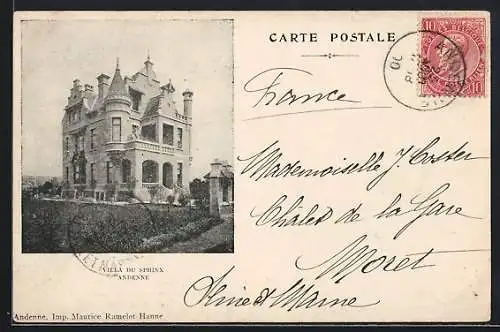 CARTE POSTALE
10 10
France
Mademoiselle J. Coster
Châlet de la Gare
Moret
Seine et Marne
VILLA DU SPHINX
ANDENNE
Andenne, Imp. Maurice Ramelot-Hanne